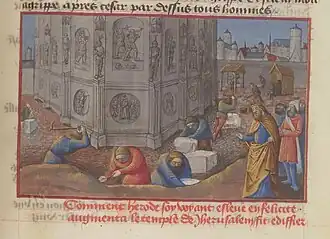 agrippe apres cestr par dessus tous hommes
Comment herode soy voyant esleue en felicite
augmenta le temple de Iherusalem fit edifier